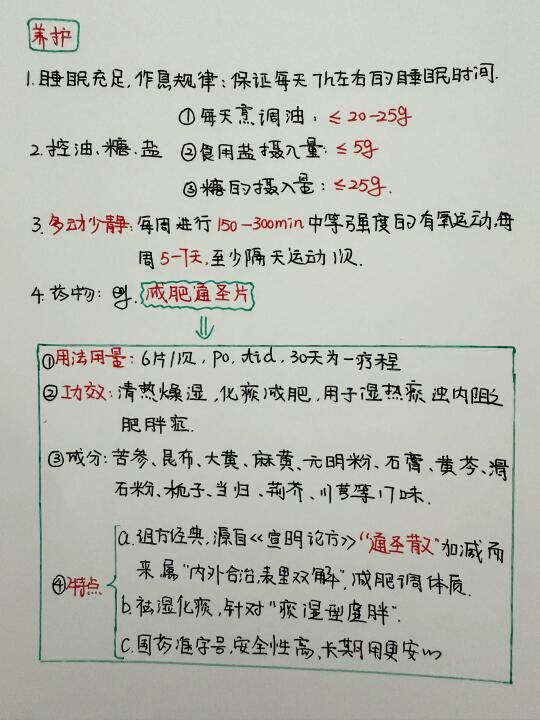 养护
1.睡眠充足,作息规律:保证每天7h左右的睡眠时间.
①每天烹调油:≤20-25g
2.控油、糖、盐 ②食用盐摄入量:≤5g
③糖的摄入量:≤25g.
3.多动少静:每周进行150-300min中等强度的有氧运动,每
周5-7天,至少隔天运动1次.
4.药物:eg.减肥通圣片
①用法用量:6片/次,po,tid,30天为一疗程
②功效:清热燥湿,化痰减肥,用于湿热痰浊内阻之
肥胖症.
③成分:苦参、昆布、大黄、麻黄、元明粉、石膏、黄芩、滑
石粉、栀子、当归、荆芥、川芎等17味.
④特点
a.组方经典,源自《宣明论方》"通圣散"加减而
来,属"内外合治,表里双解",减肥调体质.
b.祛湿化痰,针对"痰湿型虚胖".
c.国药准字号,安全性高,长期用更安心